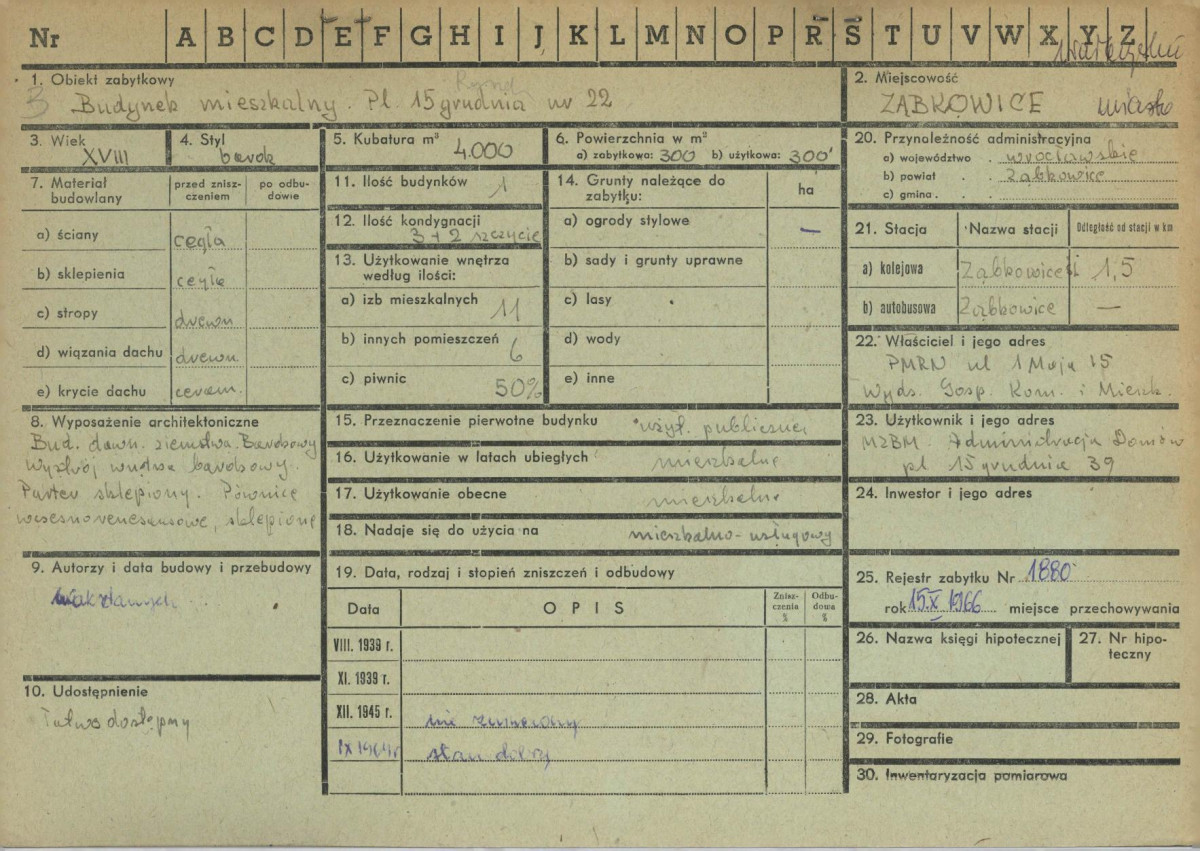 Nr A B C D E F G H I J K L M N O P R S T U V W X Y Z
1. Obiekt zabytkowy
3 Budynek mieszkalny. Pl. 15 grudnia nr 22
2. Miejscowość
ZĄBKOWICE miasto
3. Wiek
XVIII
4. Styl
barok
5. Kubatura m³ 4.000
6. Powierzchnia w m²
a) zabytkowa: 300 b) użytkowa: 300
7. Materiał budowlany
przed zniszczeniem
po odbudowie
a) ściany cegła
b) sklepienia cegła
c) stropy drewn.
d) wiązania dachu drewn.
e) krycie dachu ceram.
8. Wyposażenie architektoniczne
Bud. dawn. ziemstwa. Barokowy
wystrój wnętrza barokowy.
Parter sklepiony. Piwnice
wczesnorenesansowe, sklepione
9. Autorzy i data budowy i przebudowy
brak danych
10. Udostępnienie
Łatwo dostępny
11. Ilość budynków 1
12. Ilość kondygnacji
3 + 2 szczycie
13. Użytkowanie wnętrza
według ilości:
a) izb mieszkalnych 11
b) innych pomieszczeń 6
c) piwnic 50%
14. Grunty należące do
zabytku:
ha
a) ogrody stylowe —
b) sady i grunty uprawne
c) lasy
d) wody
e) inne
15. Przeznaczenie pierwotne budynku użyt. publicznej
16. Użytkowanie w latach ubiegłych mieszkalne
17. Użytkowanie obecne mieszkalne
18. Nadaje się do użycia na mieszkalno-usługowy
19. Data, rodzaj i stopień zniszczeń i odbudowy
Data
OPIS
Zniszczenia %
Odbudowa %
VIII. 1939 r.
XI. 1939 r.
XII. 1945 r. nie
IX 1964 r. stan dobry
20. Przynależność administracyjna
a) województwo . wrocławskie
b) powiat . . Ząbkowice
c) gmina . .
21. Stacja
Nazwa stacji
Odległość od stacji w km
a) kolejowa Ząbkowice 1,5
b) autobusowa Ząbkowice —
22. Właściciel i jego adres
PMRN ul 1 Maja 15
Wydz. Gosp. Kom. i Mieszk.
23. Użytkownik i jego adres
MZBM. Administracja Domów
pl 15 grudnia 39
24. Inwestor i jego adres
25. Rejestr zabytku Nr 1880
rok 15.X 1966 miejsce przechowywania
26. Nazwa księgi hipotecznej
27. Nr hipoteczny
28. Akta
29. Fotografie
30. Inwentaryzacja pomiarowa